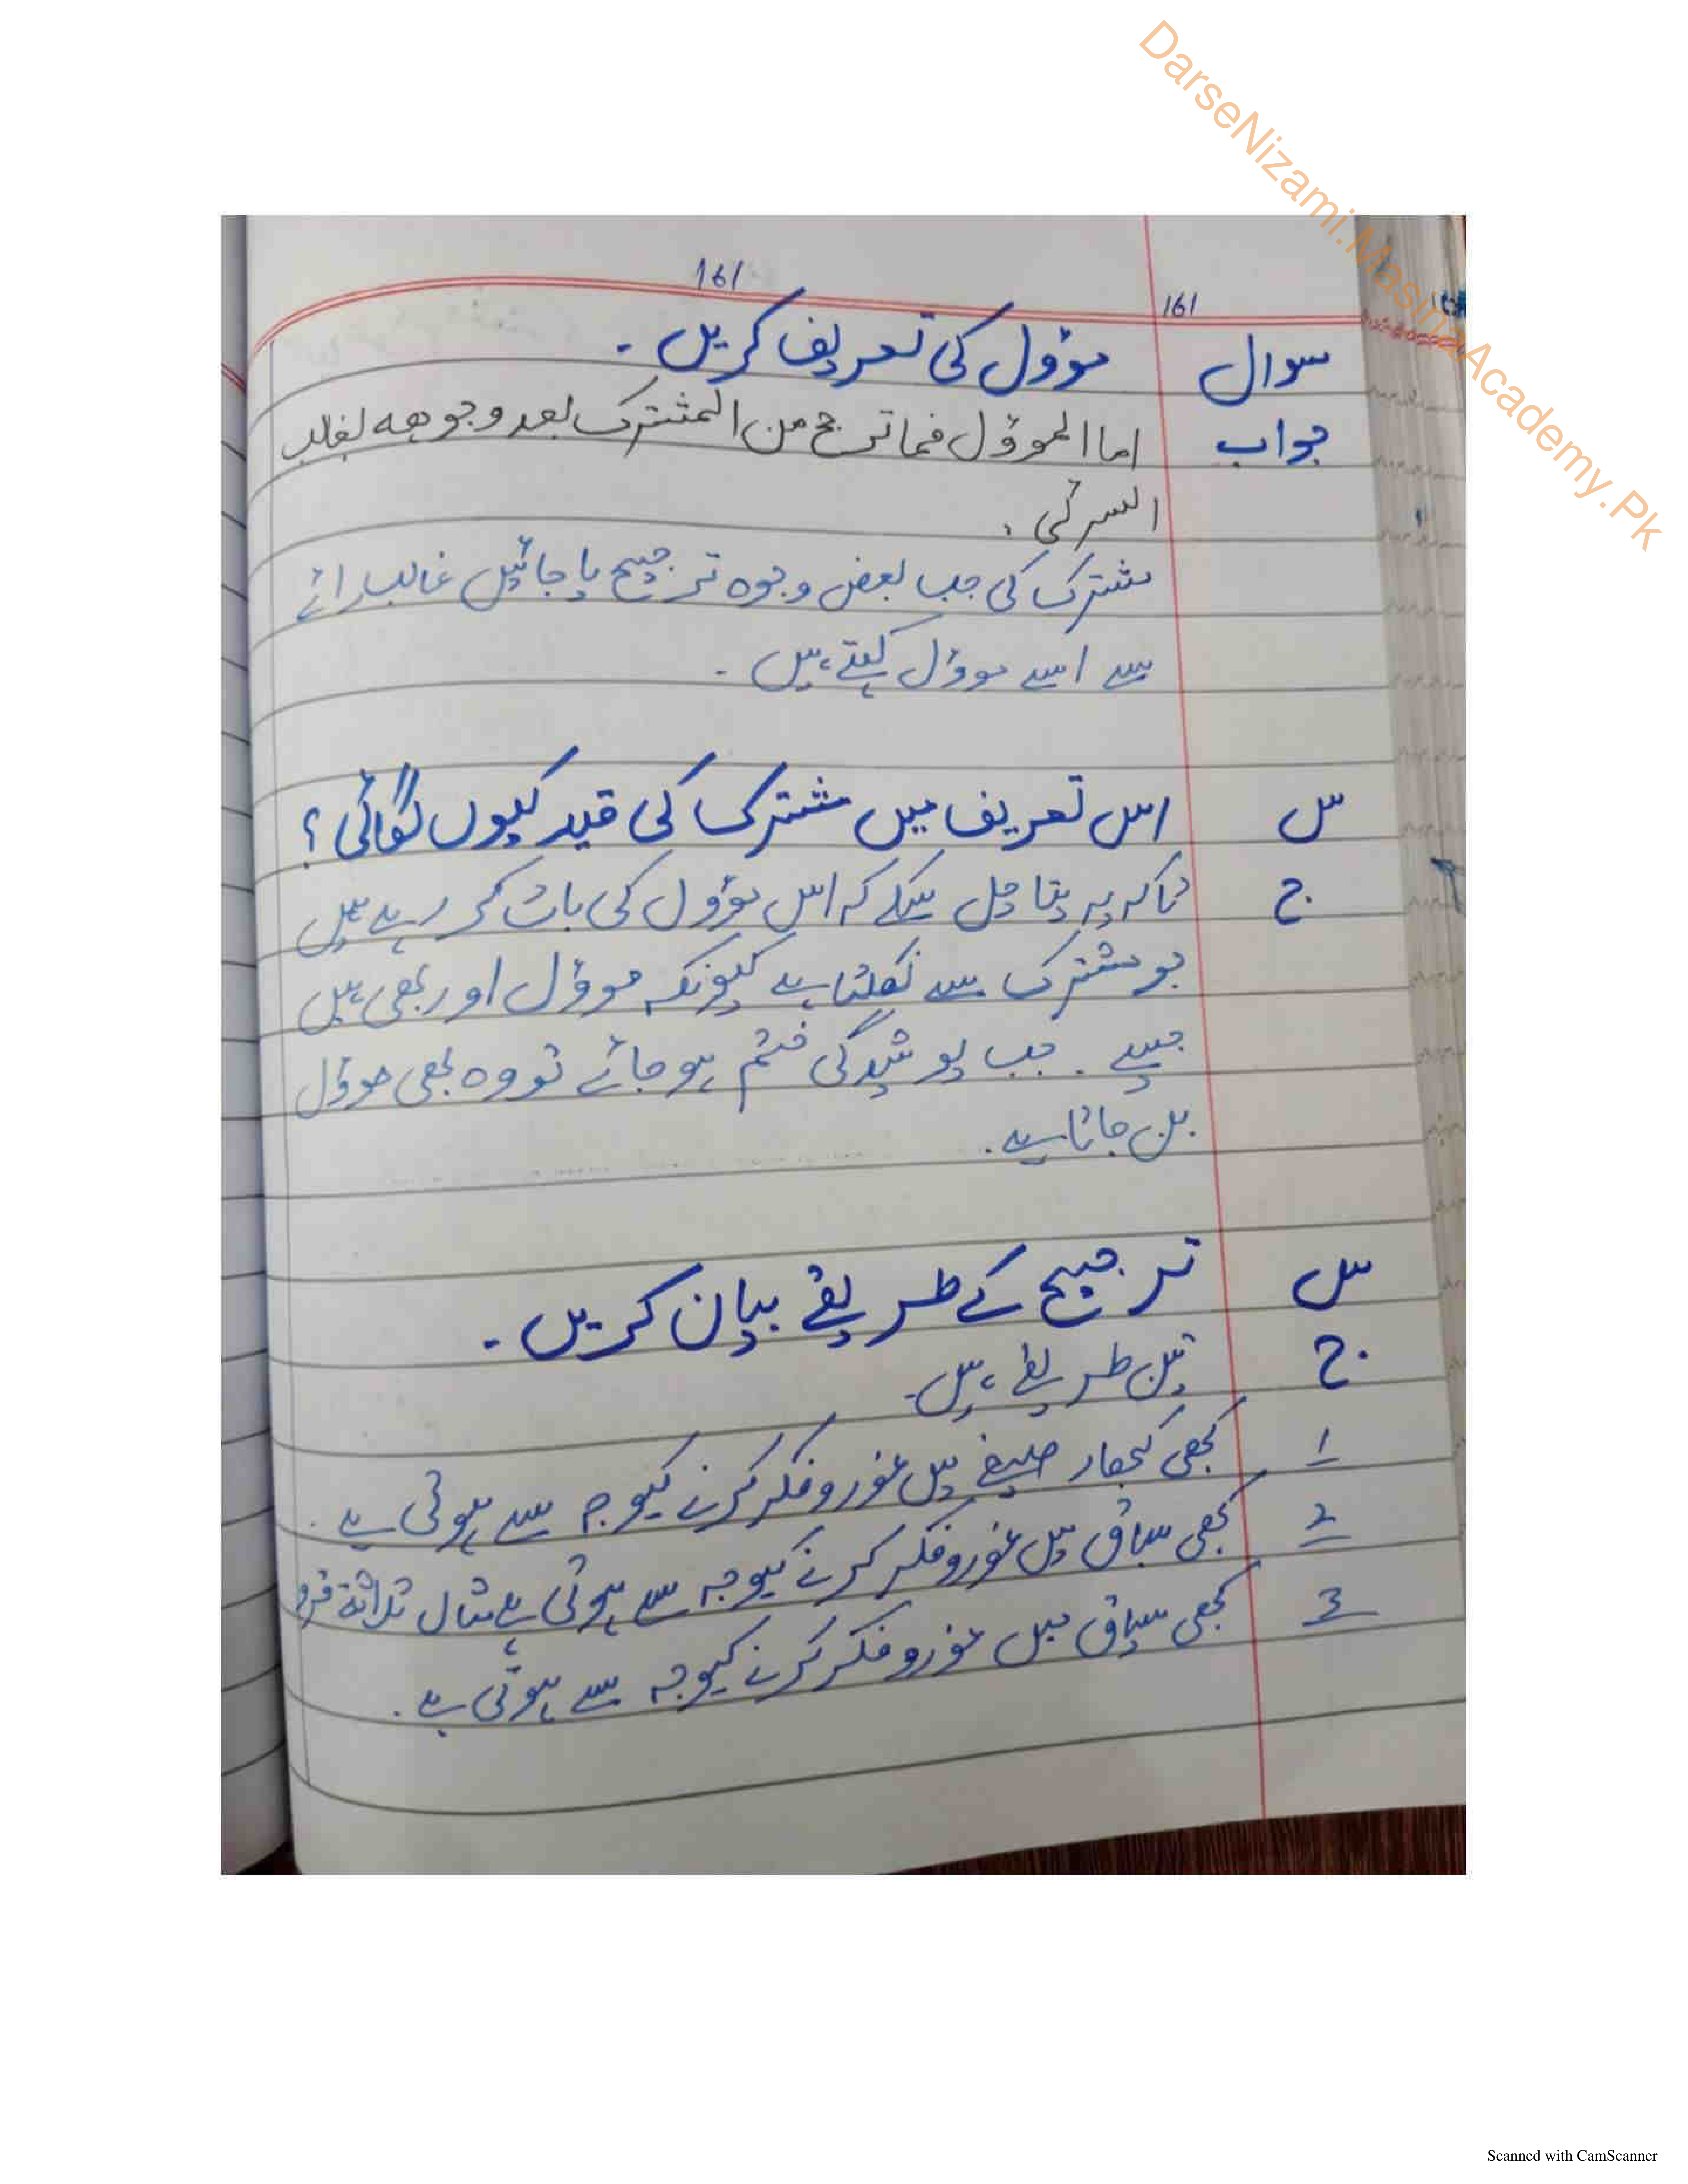 DarseNizami.MasinaAcademy.Pk
161
161
سوال مؤول کی تعریف کریں ۔
جواب اما المؤول فما ترجح من المشترک بعد وجوھه بغالب
الرئی .
مشترک کی جب بعض وجوہ ترجیح پا جائیں غالب رائے
سے اسے مووٴل کہتے ہیں ۔
س اس تعریف میں مشترک کی قید کیوں لگائی ؟
ج تاکہ یہ پتا چل سکے کہ اس مؤول کی بات کر رہے ہیں
جو مشترک سے نکلتا ہے کیونکہ مووٴل اور بھی ہیں
جیسے . جب پوشیدگی ختم ہو جائے تو وہ بھی مووٴل
بن جاتا ہے .
س ترجیح کے طریقے بیان کریں ۔
ج تین طریقے ہیں ۔
1 کبھی کبھار صیغے میں غوروفکر کرنے کیوجہ سے ہوتی ہے .
2 کبھی سباق میں غوروفکر کرنے کیوجہ سے ہوتی ہے مثال ثلاثة قرو
3 کبھی سیاق میں غوروفکر کرنے کیوجہ سے ہوتی ہے .
Scanned with CamScanner